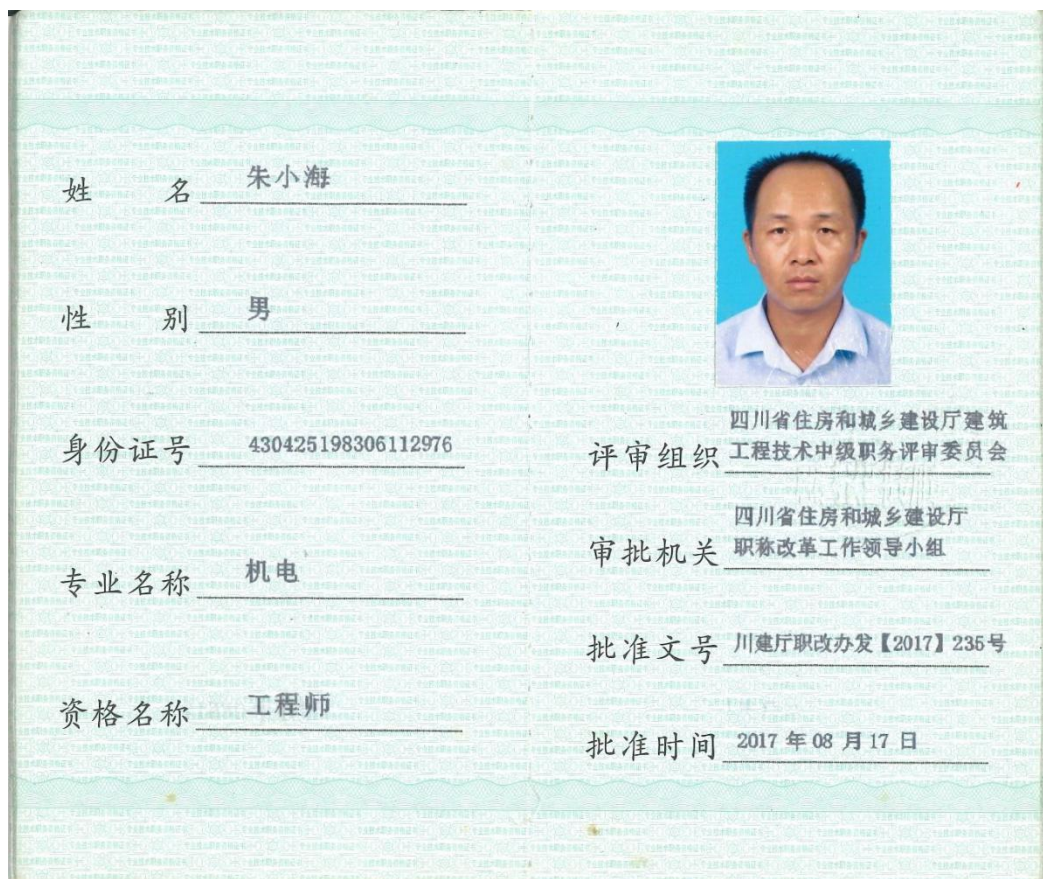 姓名 朱小海
性别 男
身份证号 430425198306112976
专业名称 机电
资格名称 工程师
评审组织 四川省住房和城乡建设厅建筑
工程技术中级职务评审委员会
审批机关 四川省住房和城乡建设厅
职称改革工作领导小组
批准文号 川建厅职改办发【2017】235号
批准时间 2017 年 08 月 17 日